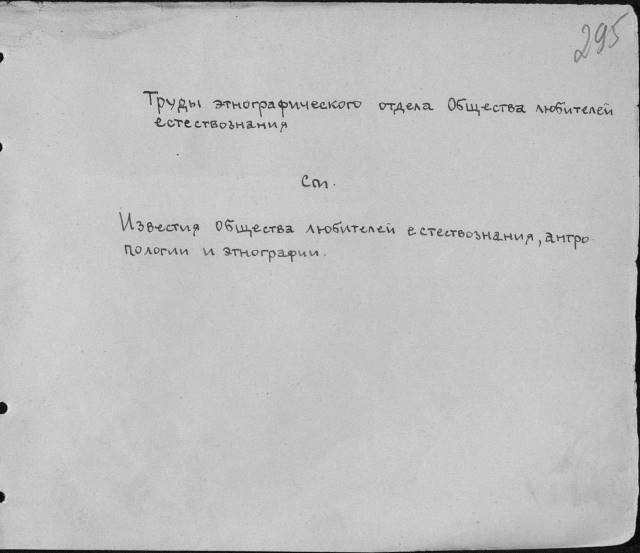 295
Труды этнографического отдела Общества любителей
естествознания
См.
Известия Общества любителей естествознания, антро
пологии и этнографии.